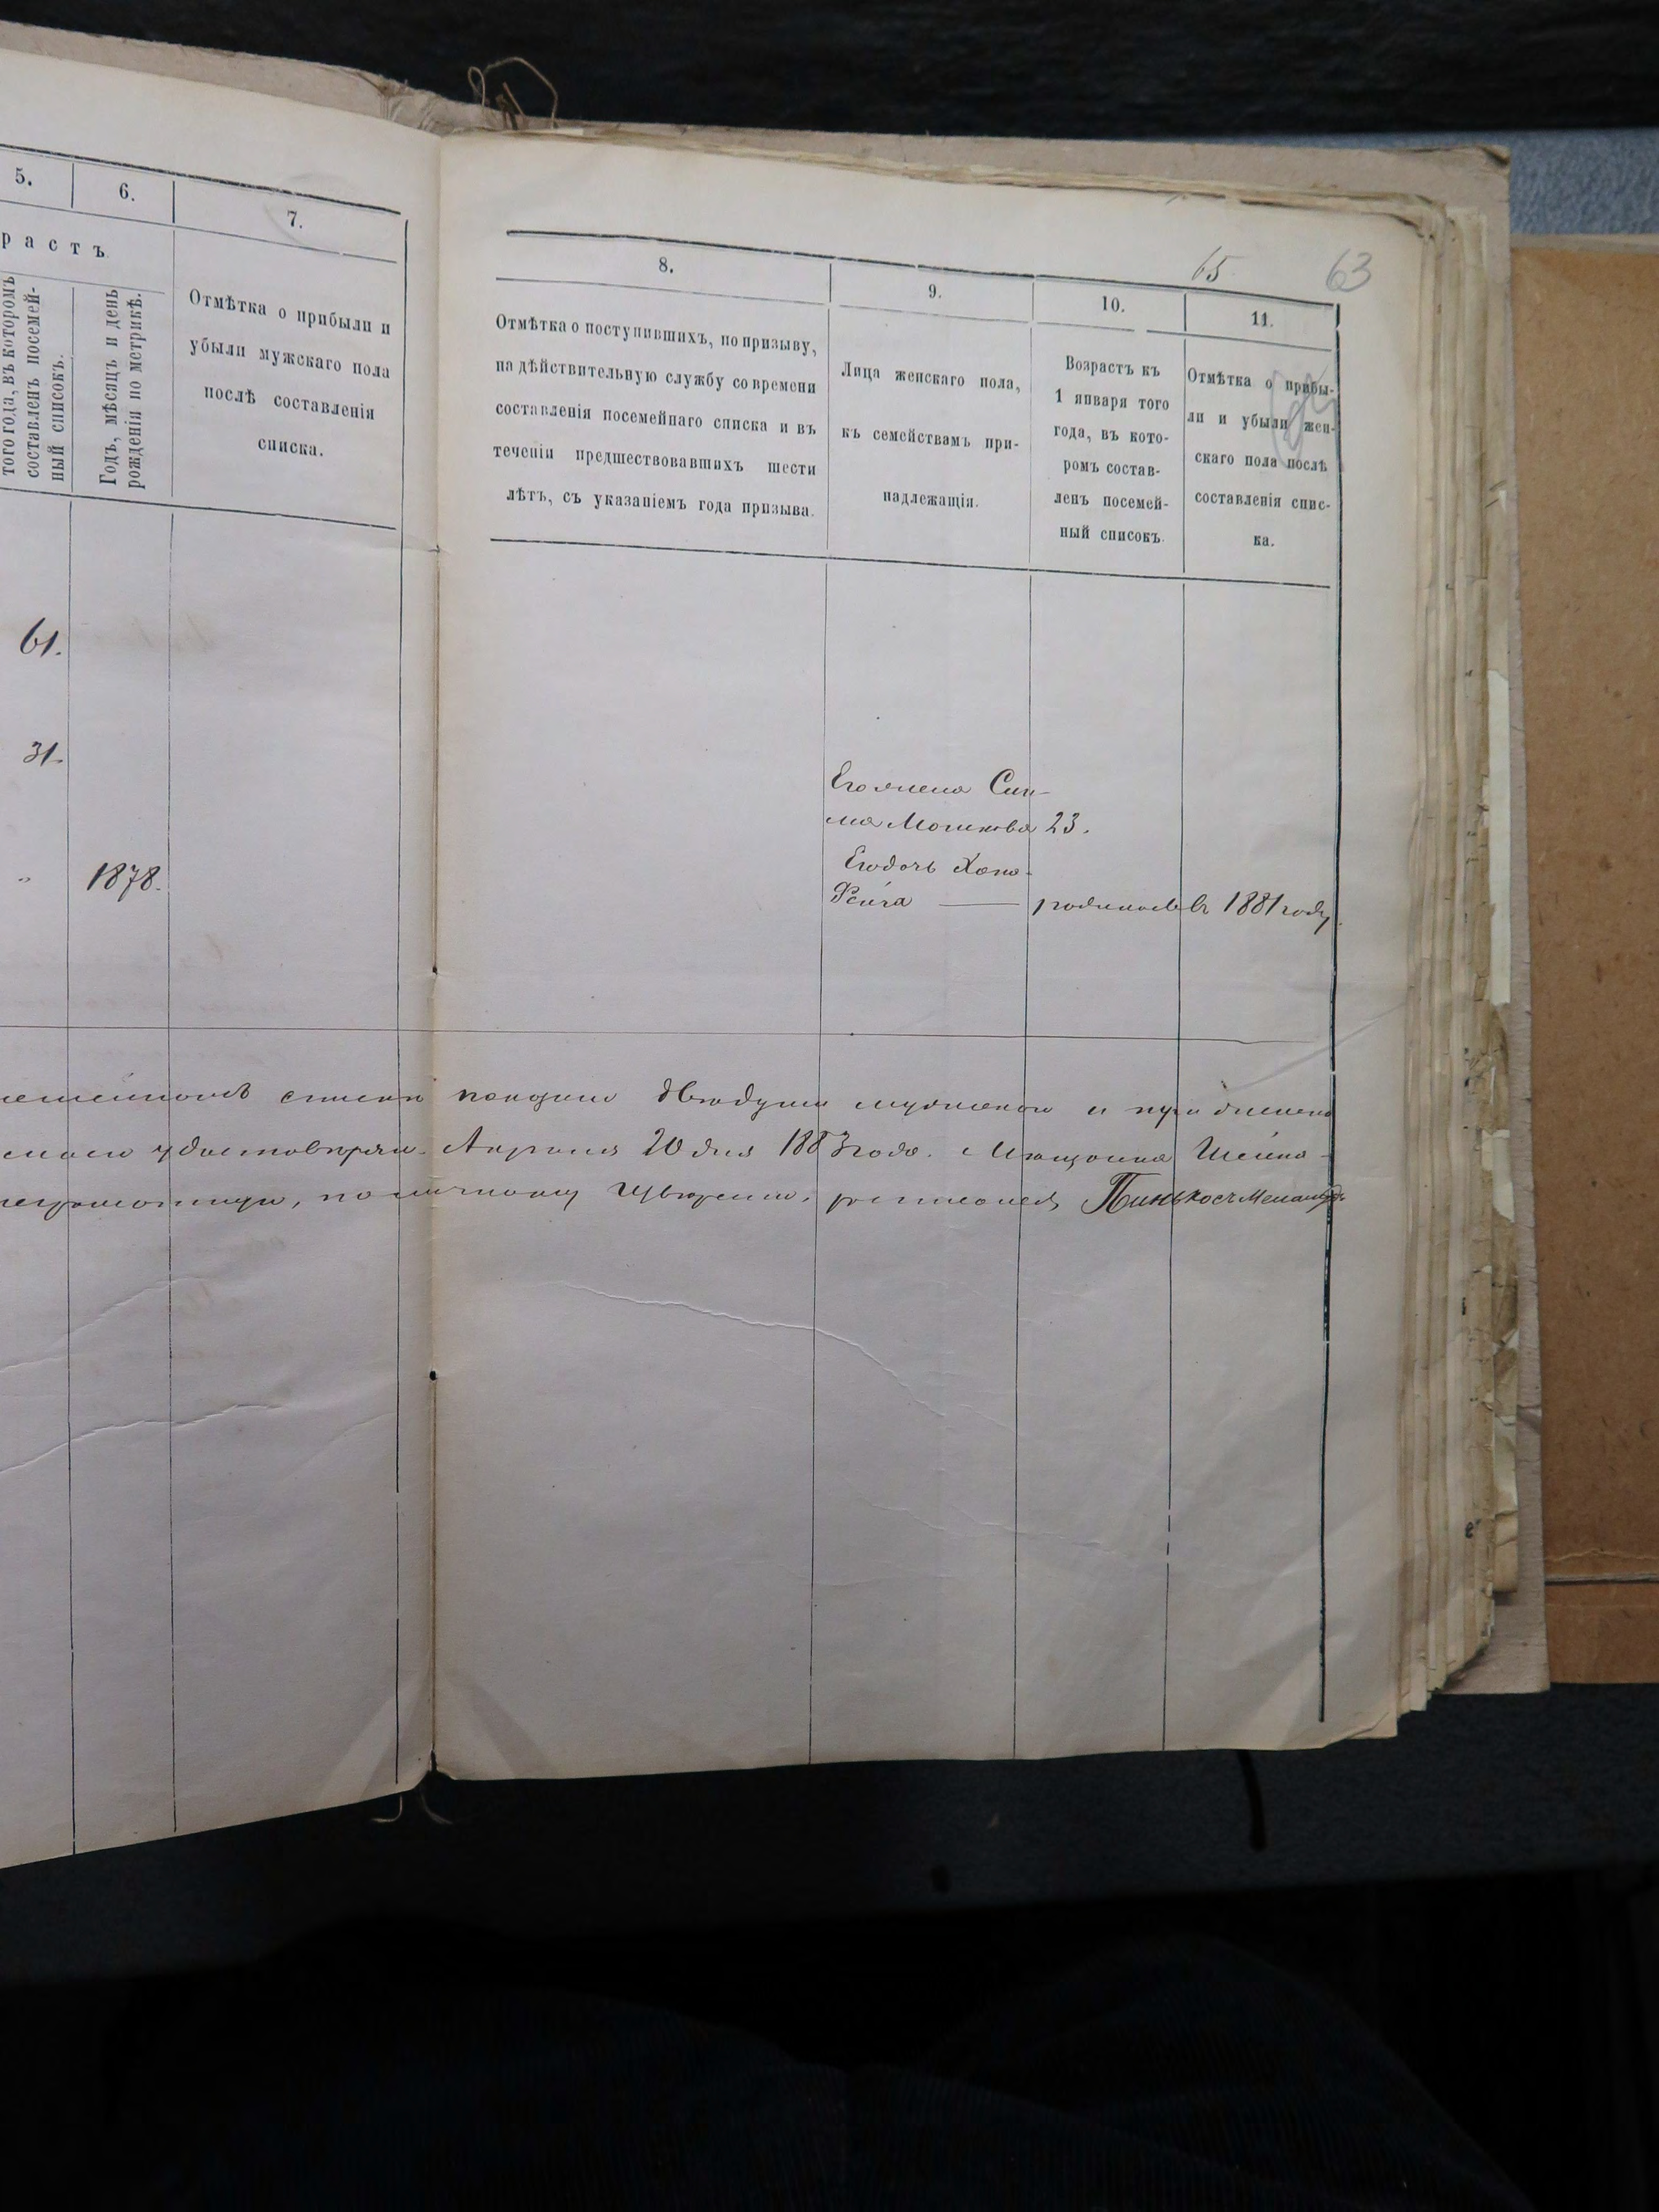 5.
6.
7.
растъ
того года, въ которомъ
составленъ посемей-
ный списокъ.
Годъ, мѣсяцъ и день
рожденія по метрикѣ.
Отмѣтка о прибыли и
убыли мужскаго пола
послѣ составленія
списка.
61.
31.
"
1878.
65
63
8.
9.
10.
11.
Отмѣтка о поступившихъ, по призыву,
на дѣйствительную службу со времени
составленія посемейнаго списка и въ
теченіи предшествовавшихъ шести
лѣтъ, съ указаніемъ года призыва.
Лица женскаго пола,
къ семействамъ при-
надлежащія.
Возрастъ къ
1 января того
года, въ кото-
ромъ состав-
ленъ посемей-
ный списокъ.
Отмѣтка о прибы-
ли и убыли жен-
скаго пола послѣ
составленія спис-
ка.
Его жена
Мошкова 23.
Его дочь Хана-
Фейга — родилась въ 1881 году.
списки показаны двѣ души мужского и
удостовѣряю. Апрѣля 20 дня 1883 года. Мѣщанка Шейна-
по личному росписался Пинькосъ